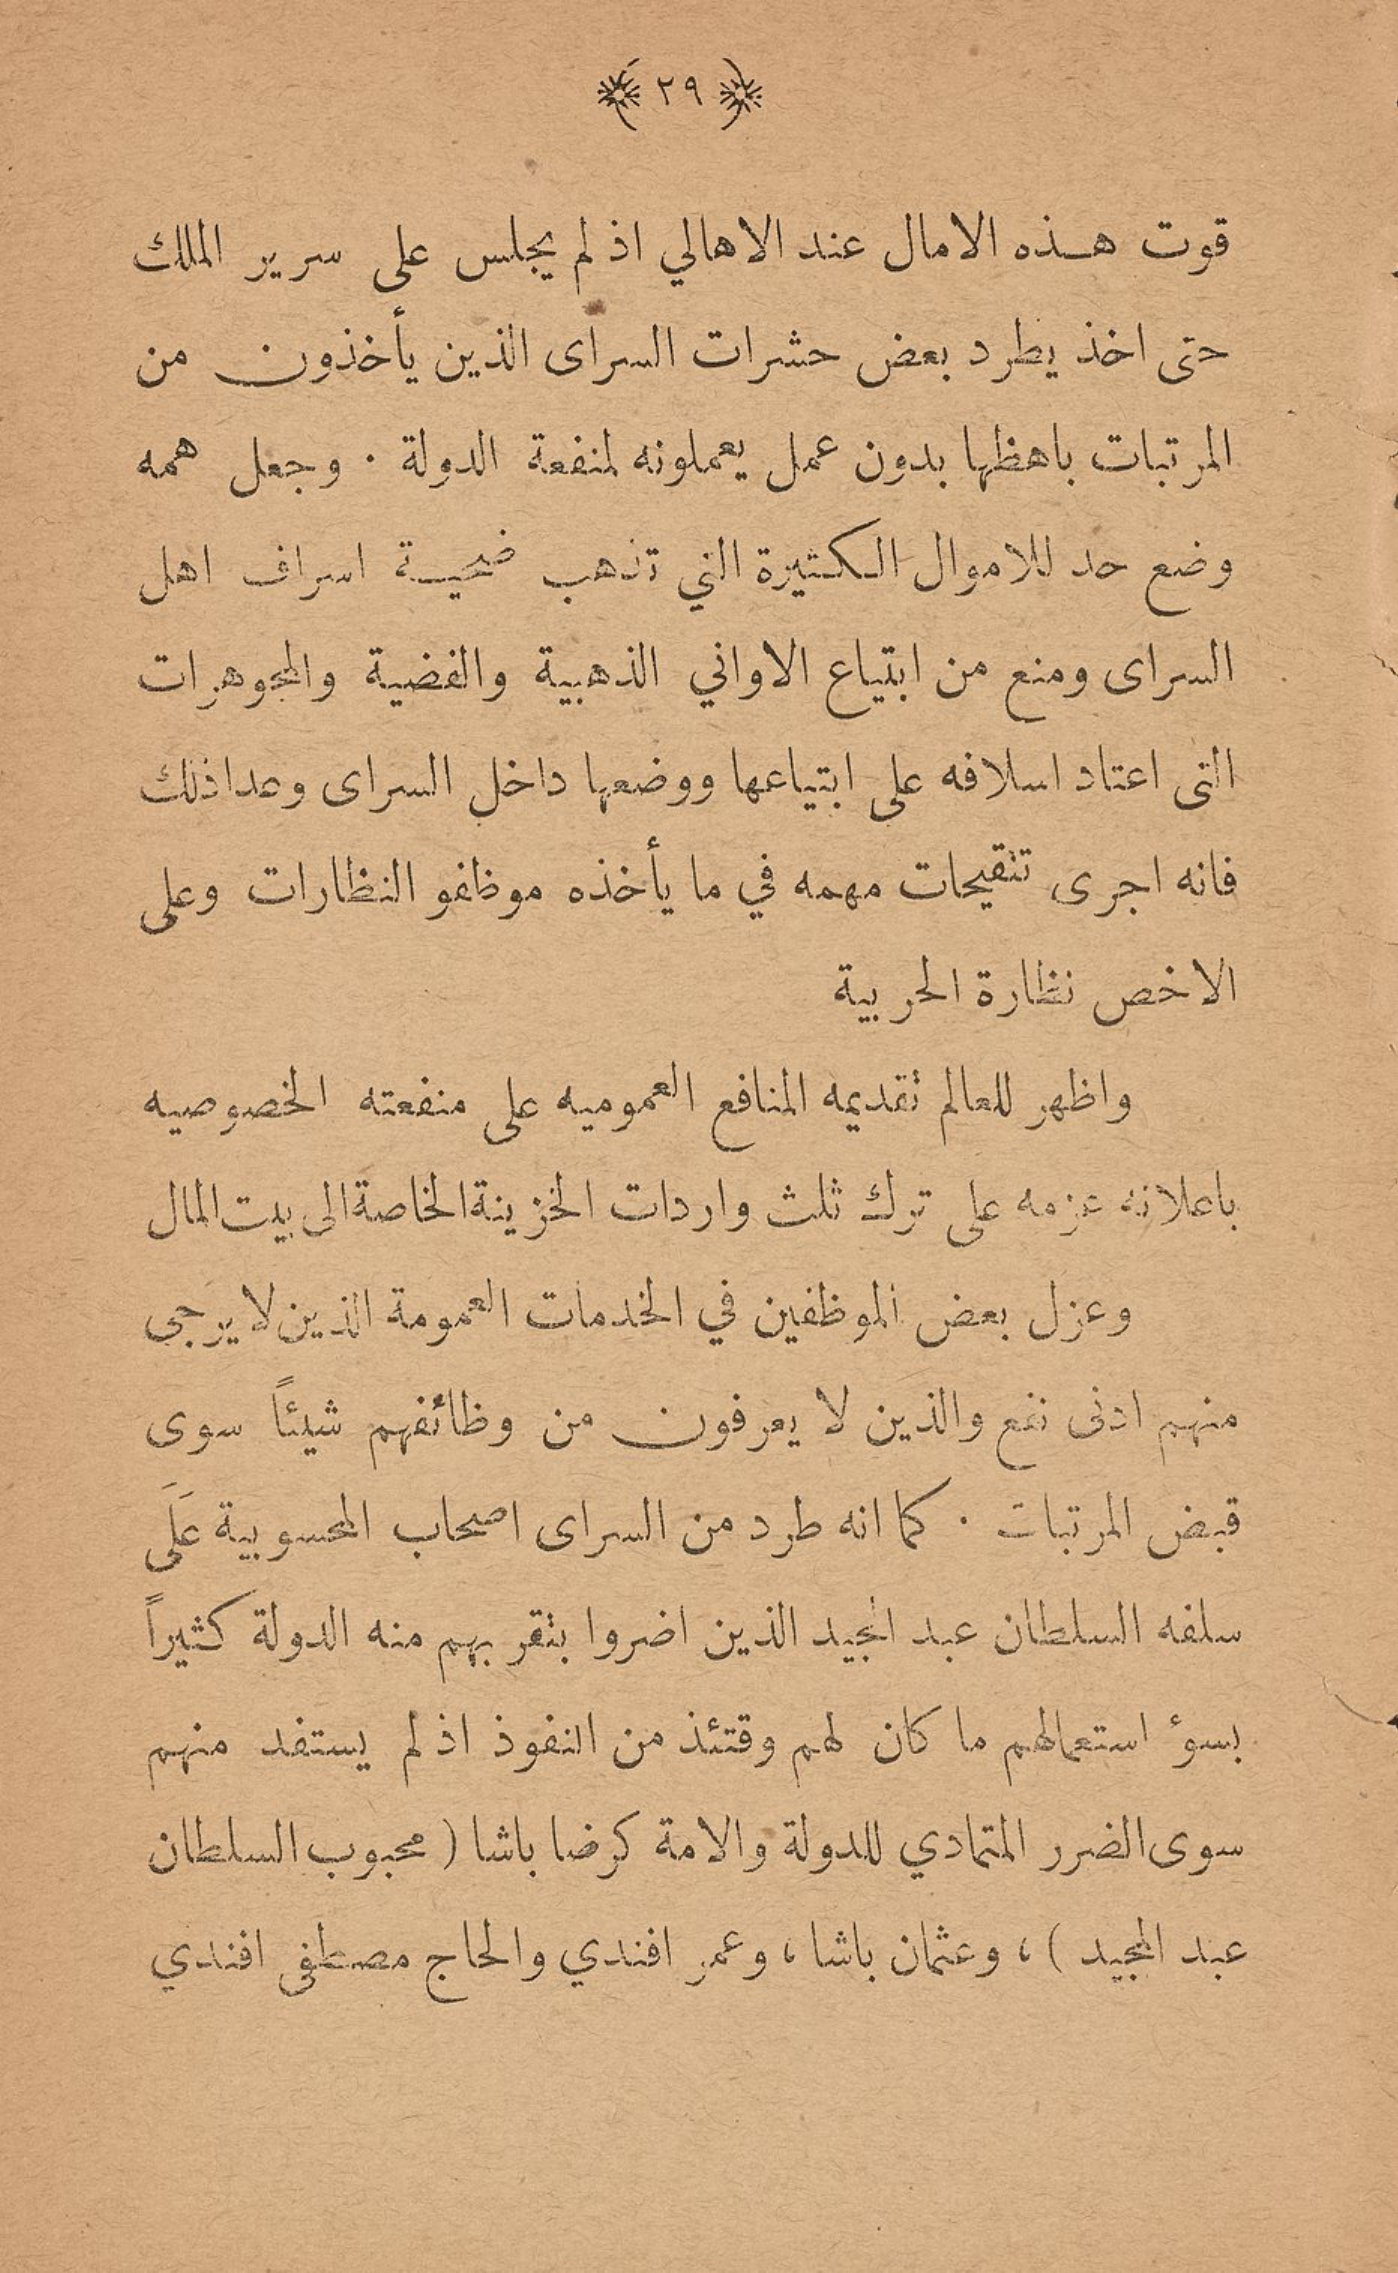 ﴿ ٢٩ ﴾
قوت هـذه الامال عند الاهالي اذ لم يجلس على سرير الملك
حتى اخذ يطرد بعض حشرات السراى الذين يأخذون من
المرتبات باهظها بدون عمل يعملونه لمنفعة الدولة . وجعل همه
وضع حد للاموال الكثيرة التي تذهب ضحيـة اسراف اهل
السراى ومنع من ابتياع الاواني الذهبية والفضية والمجوهرات
التى اعتاد اسلافه على ابتياعها ووضعها داخل السراى وعدا ذلك
فانه اجرى تنقيحات مهمه في ما يأخذه موظفو النظارات وعلى
الاخص نظارة الحربية
واظهر للعالم تقديمه المنافع العموميه على منفعته الخصوصيه
باعلانه عزمه على ترك ثلث واردات الخزينة الخاصة الى بيت المال
وعزل بعض الموظفين في الخدمات العمومة الذين لا يرجى
منهم ادنى نفع والذين لا يعرفون من وظائفهم شيئاً سوى
قبض المرتبات . كما انه طرد من السراى اصحاب المحسوبية عَلَى
سلفه السلطان عبد المجيد الذين اضروا بتقربهم منه الدولة كثيراً
بسؤ استعمالهم ما كان لهم وقتئذ من النفوذ اذ لم يستفد منهم
سوى الضرر المتمادي للدولة والامة كرضا باشا ( محبوب السلطان
عبد المجيد ) ، وعثمان باشا ، وعمر افندي والحاج مصطفى افندي